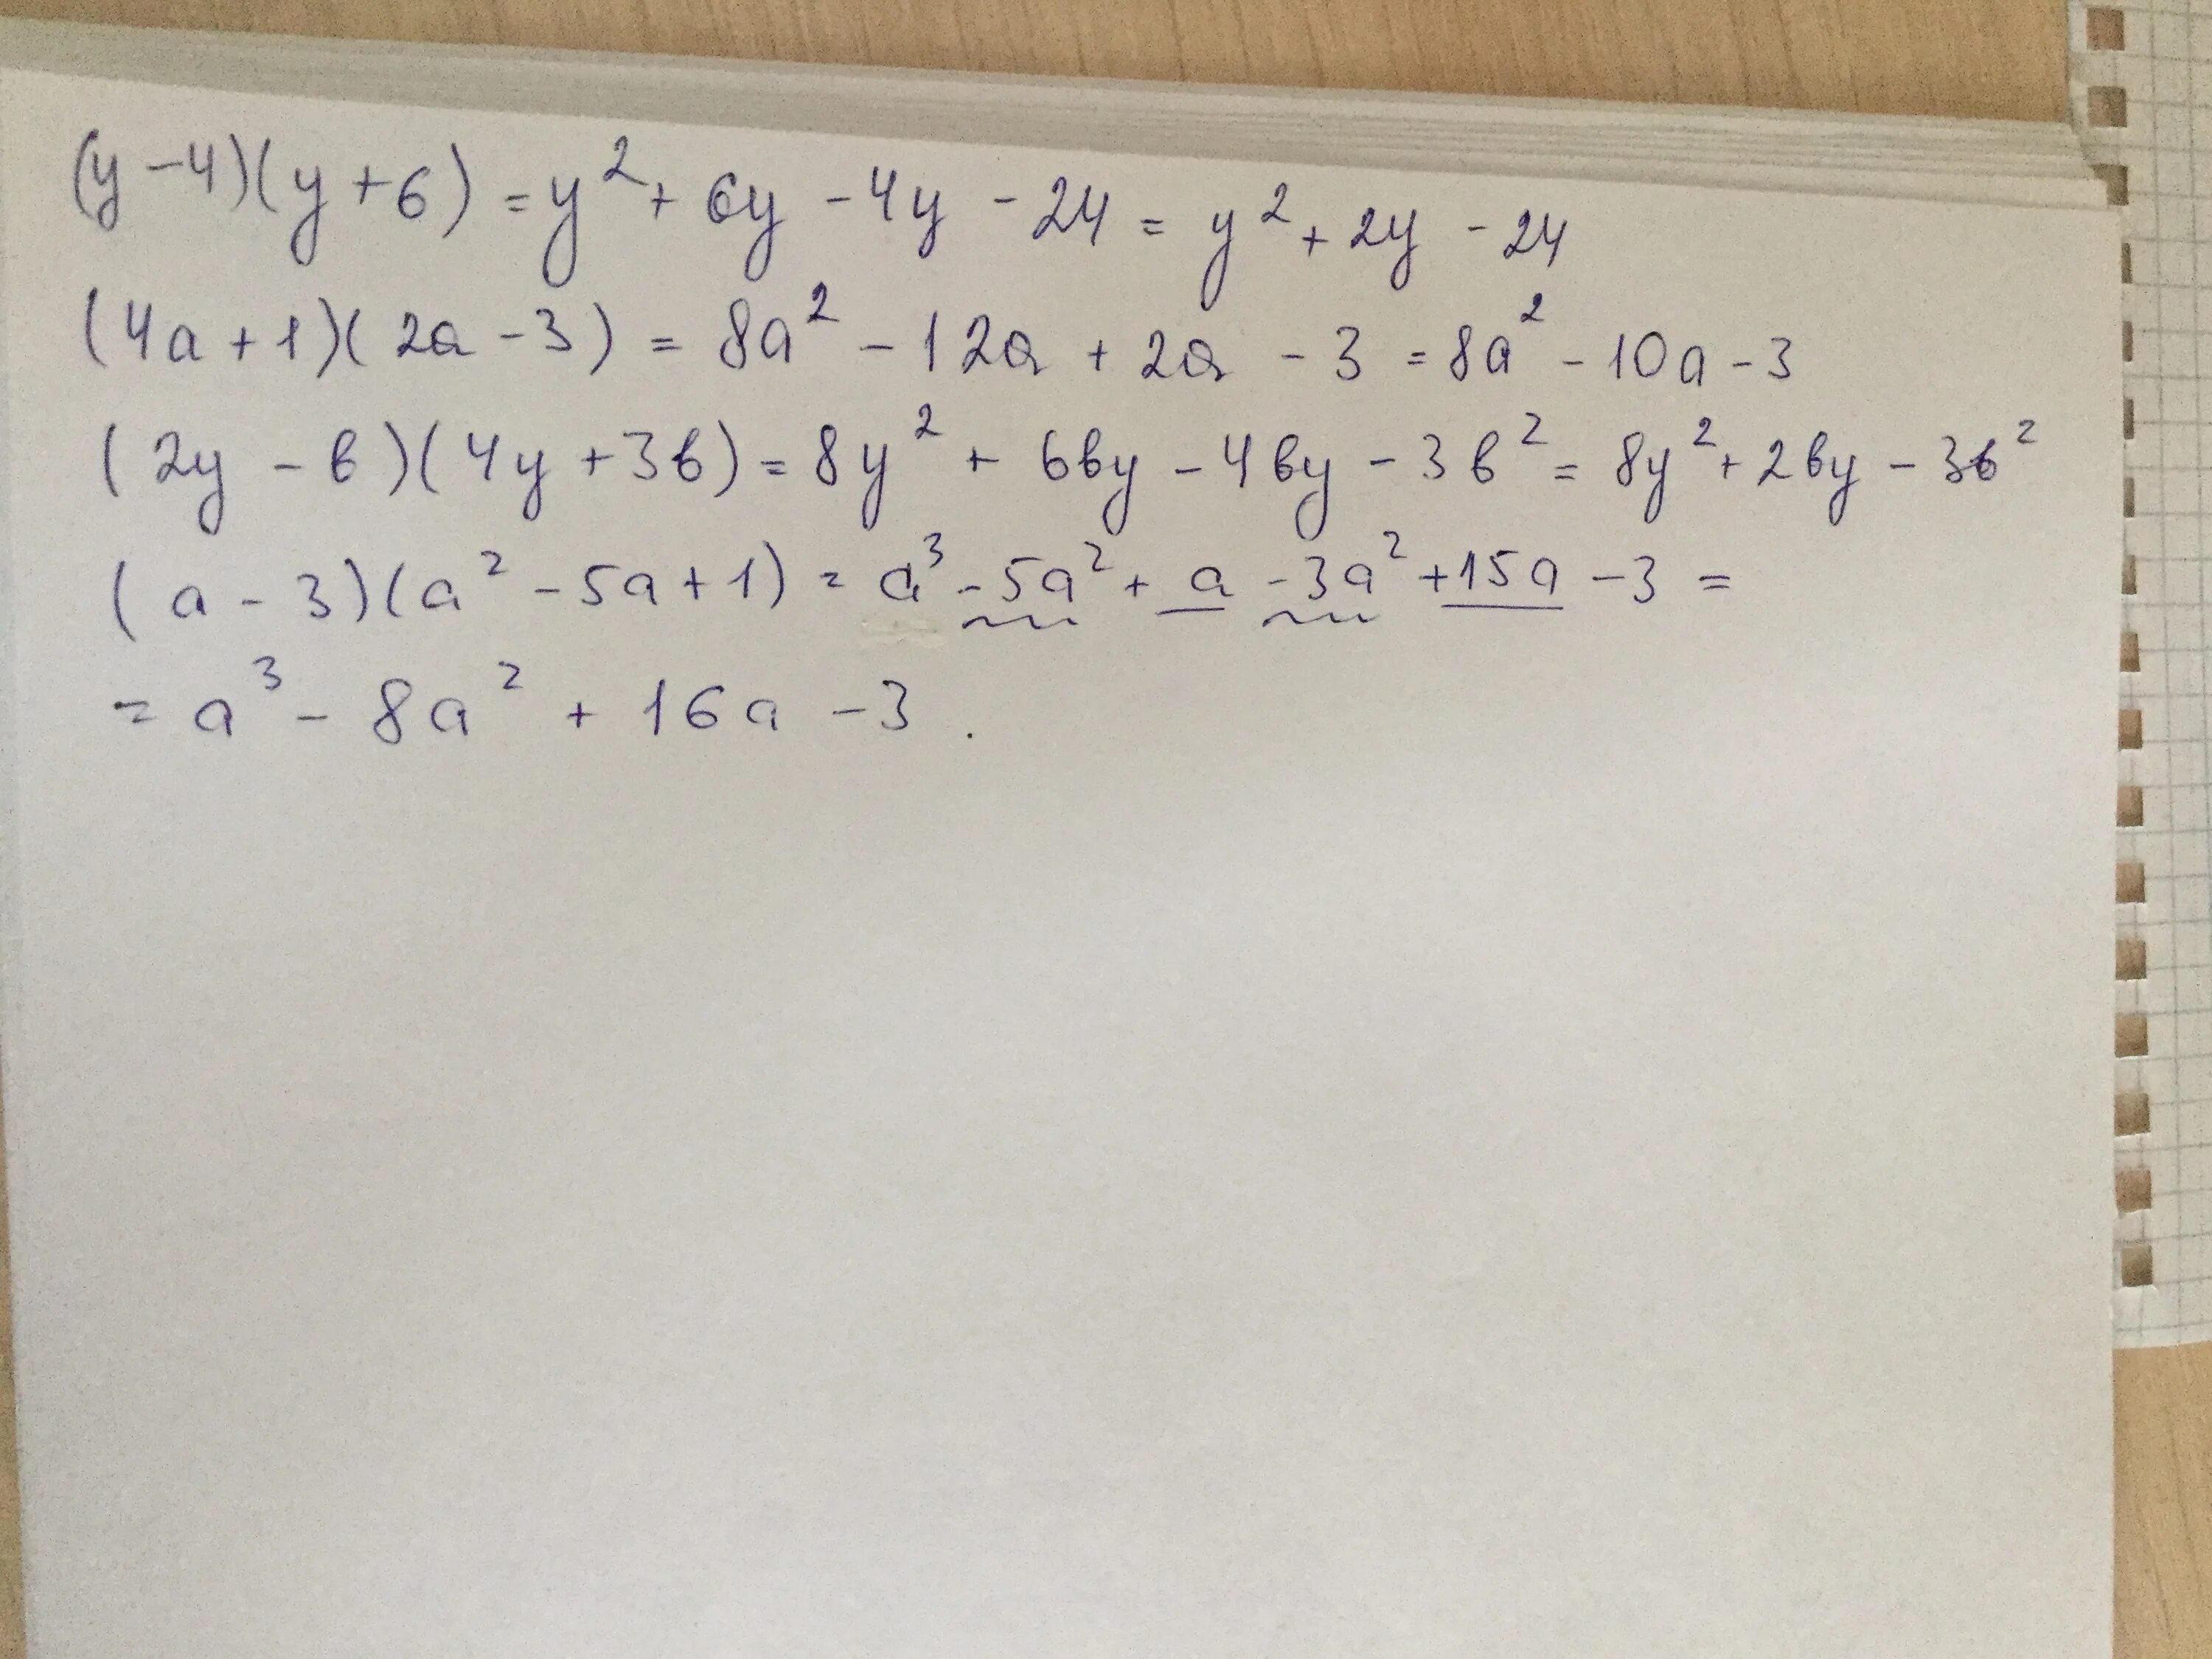 (y - 4)(y + 6) = y² + 6y - 4y - 24 = y² + 2y - 24
(4a + 1)(2a - 3) = 8a² - 12a + 2a - 3 = 8a² - 10a - 3
(2y - b)(4y + 3b) = 8y² + 6by - 4by - 3b² = 8y² + 2by - 3b²
(a - 3)(a² - 5a + 1) = a³ - 5a² + a - 3a² + 15a - 3 =
= a³ - 8a² + 16a - 3 .